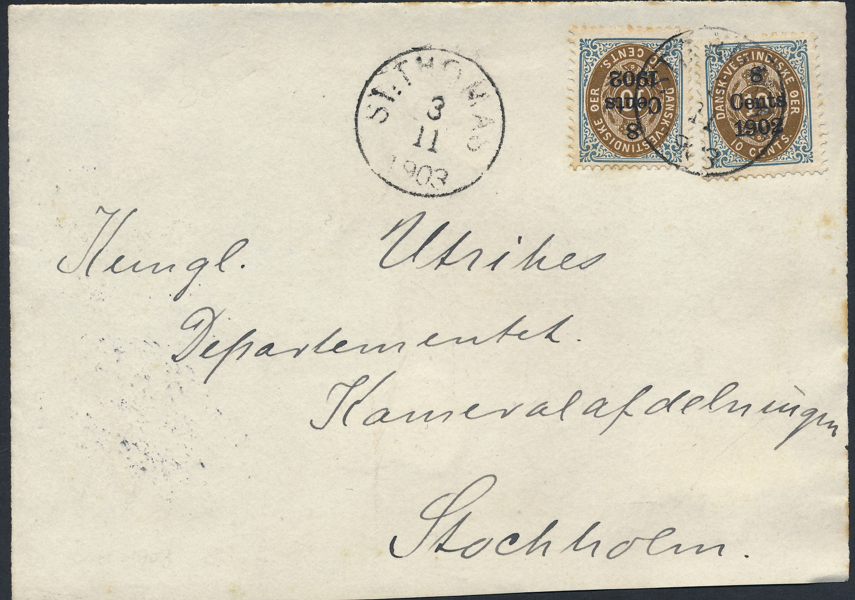 ST. THOMAS
3
11
1903
DANSK-VESTINDISKE ØER
10 CENTS.
8
Cents
1902
DANSK-VESTINDISKE ØER
10 CENTS.
8
Cents
1902
Kungl. Utrikes
Departementet.
Kameralafdelningen
Stockholm.